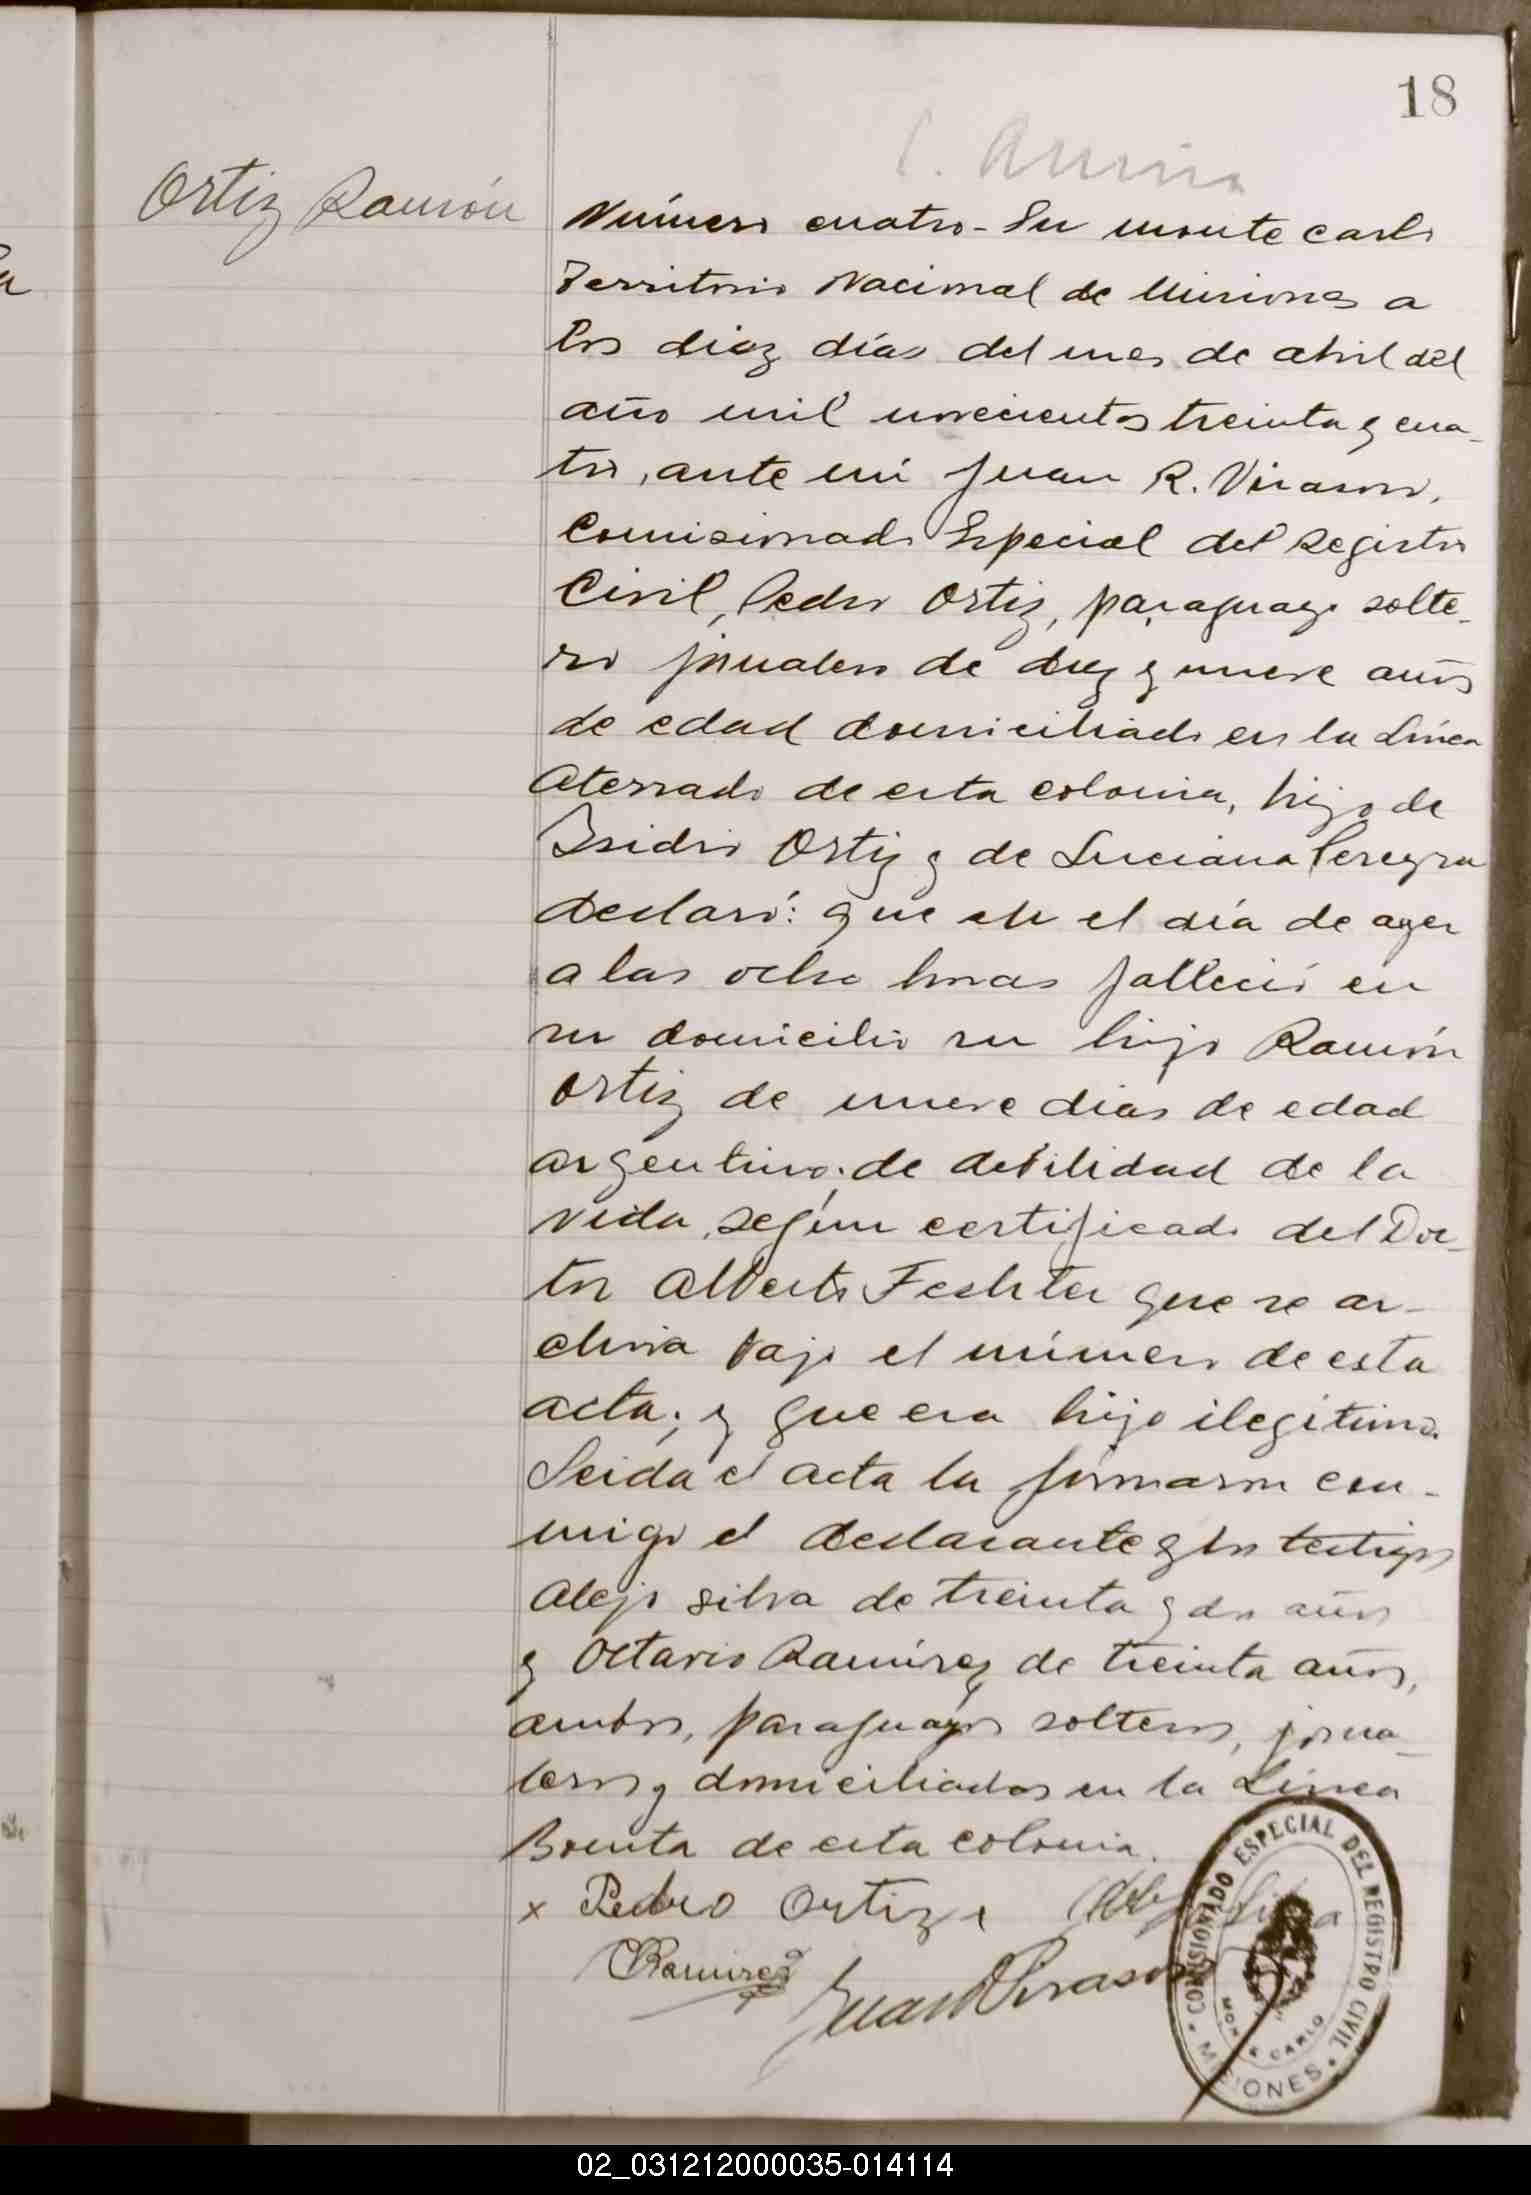 18
Ortiz Ramón
Número cuatro - En monte carlo
Territorio Nacional de Misiones a
los diez días del mes de abril del
año mil novecientos treinta y cua-
tro, ante mí Juan R. Virasoro,
Comisionado Especial del Registro
Civil, Pedro Ortiz, paraguayo solte-
ro jornalero de diez y nueve años
de edad domiciliado en la Línea
Aterrado de esta colonia, hijo de
Isidro Ortiz y de Luciana Pereyra
declaró: que en el día de ayer
a las ocho horas falleció en
su domicilio su hijo Ramón
Ortiz de nueve dias de edad
argentino; de debilidad de la
vida, según certificado del Doc-
tor Alberto que se ar-
chiva bajo el número de esta
acta; y que era hijo ilegítimo.
Leida el acta la firmaron con-
migo el declarante y los testigos
Alejo Silva de treinta y dos años
y Octavio Ramírez de treinta años,
ambos, paraguayos solteros, jorna-
leros y domiciliados en la Línea
Bonita de esta colonia.
x Pedro Ortiz Silva
ORamirez Juan R Virasoro
COMISIONADO ESPECIAL DEL REGISTRO CIVIL
MONTE CARLO
MISIONES
02_031212000035-014114